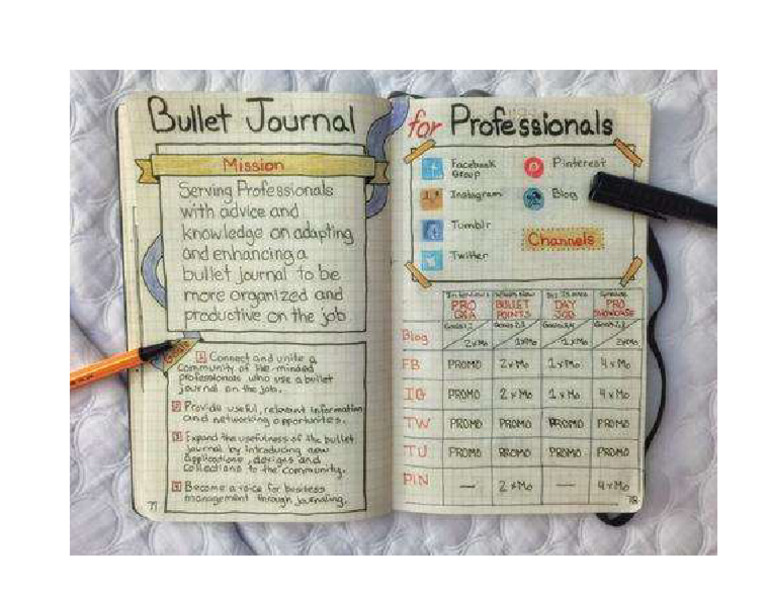 Bullet Journal
Mission
Serving Professionals
with advice and
knowledge on adapting
and enhancing a
bullet journal to be
more organized and
productive on the job
Goals
1 Connect and unite a
community of like-minded
professionals who use a bullet
journal on the job.
2 Provide useful, relevant information
and networking opportunites.
3 Expand the usefulness of the bullet
journal by introducing new
applications, designs and
collections to the community.
4 Become a voice for business
management through journaling.
77
for Professionals
Facebook Group
Pinterest
Instagram
Blog
Tumblr
Channels
Twitter
PRO Q&A
BULLET POINTS
DAY JOB
PRO SHOWCASE
Blog 2xMo 1xMo 1xMo 2xMo
FB PROMO 2xMo 1xMo 4xMo
IG PROMO 2xMo 1xMo 4xMo
TW PROMO PROMO PROMO PROMO
TU PROMO PROMO PROMO PROMO
PIN — 2xMo — 4xMo
78